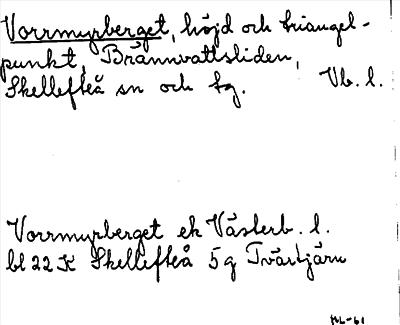 Vorrmyrberget, höjd och triangel-
punkt, Brännvattsliden,
Skellefteå sn och tg. Vb. l.
Vorrmyrberget ek Västerb. l.
bl 22 K Skellefteå 5g Tvärtjärn